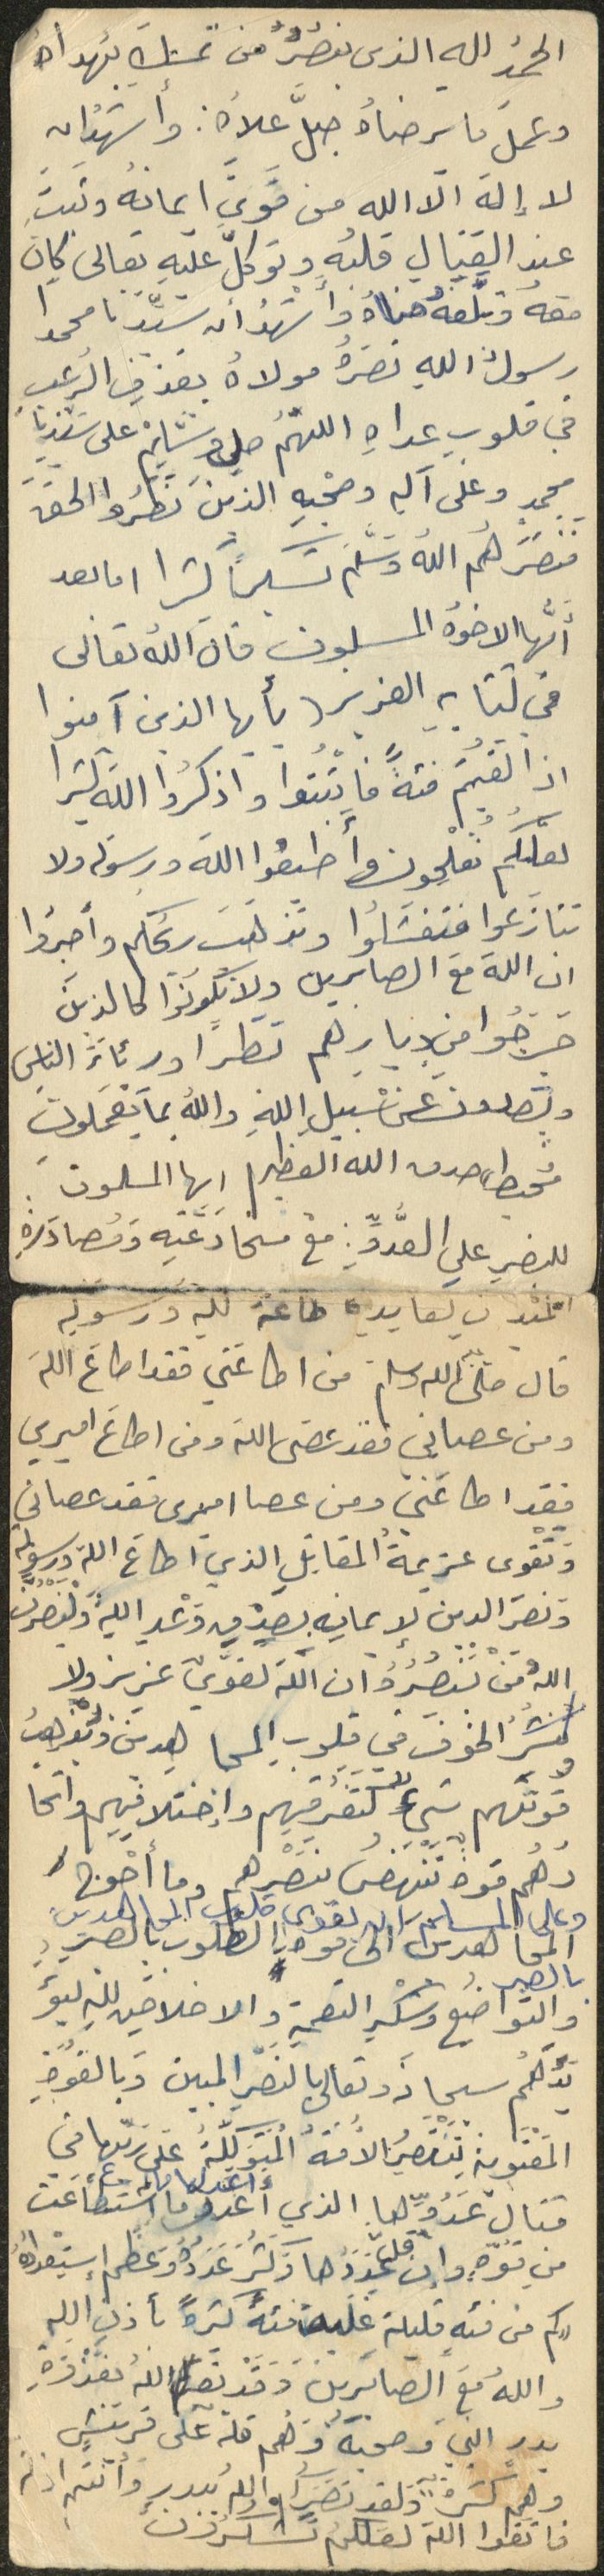 الحمدُ لله الذي ينصُرُ من تمسّكَ بهُداهُ
وعملَ ما يرضاهُ جلَّ علاهُ. وأشهدُ ان
لا إلهَ الّا الله من قَوِيَ ايمانهُ وثبتَ
عند القتالِ قلبُه وتوكلَّ عليهِ تعالى كان
معهُ وبلّغهُ مناهُ وأشهدُ أن سيّدَنا محمدا
رسولُ اللهِ نصَرهُ مولاهُ بقذفِ الرُعبِ
في قلوبِ عداهِ اللهمُ صلِّ وسلِّمْ على سيّدِنا
محمدٍ وعلى آلهِ وصحبِه الذينَ نصَرُوا الحقَّ
فنصَرَهُم اللهُ وسَلَّمَ تسليماً كثيرا اما بعد
أيُّها الاخوةُ المسلمون قالَ اللهُ تعالى
في كتابهِ العزيز (يأيها الذين آمنوا
اذا لقيتُم فئةً فاثبُتُوا واذكُرُوا اللهَ كثيرا
لعلّكُم تُفلِحون وأطيعُوا اللهَ ورسولَه ولا
تنازَعوا فتفشَلُوا وتذهَبَ ريحُكم وأصبرُوا
ان اللهَ معَ الصابرين ولا تكُونوُا كالذينَ
خرَجُوا من ديارِهم بَطَرًا ورئاءَ الناسِ
ويصدون عن سبيلِ اللهِ واللهُ بما يَعمَلونَ
مُحيط) صدق الله العظيم ايها المسلمون
للنصرِ على العدُوِّ: مع مخادَعتِه ومُصادَرةِ
الجُندي لقايدِه طاعة للهِ ورسولِه
قال صلّى الله وسلم من اطاعَني فقد اطاعَ اللهَ
ومن عصاني فقد عصَى اللهَ ومن اطاعَ اميري
فقد اطاعَني ومن عصا اميري فقد عصاني
وتَقْوى عزيمةُ المقاتلِ الذي اطاعَ اللهَ ورسولَه
ونصرَ الدين لإيمانِه بصِدْقِ وَعْدِ اللهِ ولَيَنصُرَنَّ
اللهُ مَنْ يَنصُرُهُ ان اللهَ لقَوِيٌّ عزيز ولا
يَنشُرُ الخوفَ في قلوبِ المجاهدين ويُذهِبُ
قوتَهم شيءٌ كتفَرُّقِهِم وإختلافِهِم واتحا
دُهُم قوةٌ تَنهَضُ بنَصْرِهم وما أحوجَ
وعلى المسلم ان يقوي قلوب المجاهدين
المجاهدين الى قوةِ القلوب بالصبرِ
بالصبر
والتواضُعِ وشكْرِ النعمةِ والاخلاصِ للهِ ليؤ
يدَهُم سبحانَه وتعالى بالنصرِ المبين وبالقُوةِ
المَعْنَوية تَنتصِرُ الأُمّةُ المُتَوكِّلَةُ على ربِّها في
قتالِ عَدُوِّها الذي أعدَّ لها ما استطاعَت
من قوّةٍ وإن قلَّ عددُها وكَثُرَ عَدَدُهُ وعَظُم إستِعْدادُهُ
«كم من فئهٍ قليلةٍ غلبت فئةً كثيرةً بأذنِ اللهِ
واللهُ معَ الصابرين» وَقَدْ نصَرَ اللهُ بغَزْوَةِ
بدرٍ النبيَ وصحبَهُ وهُم قلةٌ على قريشٍ
وهم كثرةٌ «ولقد نصَرَكُم اللهُ ببدرٍ وأنتم اذلّه
فاتقوا اللهَ لعلّكُم تشكُرُون»